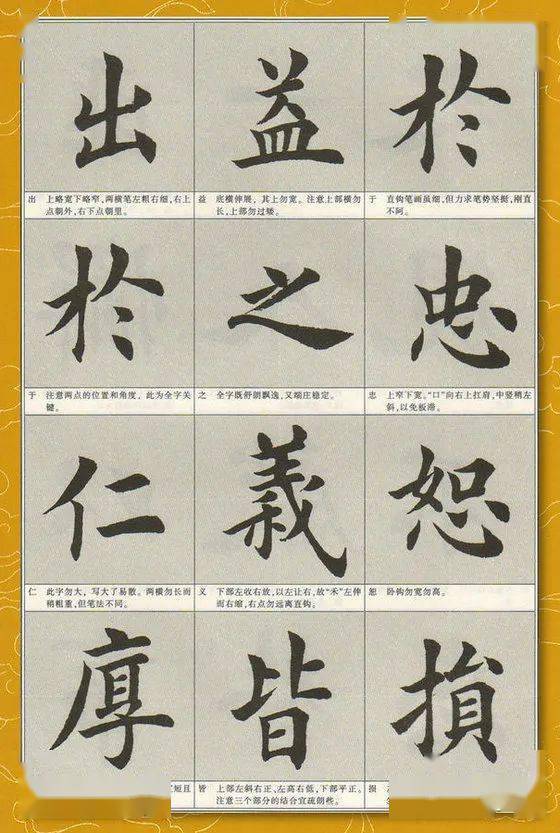 於
于 直钩笔画虽细,但力求笔势坚挺,刚直
不阿。
忠
忠 上窄下宽。“口”向右上扛肩,中竖稍左
斜,以免板滞。
恕
恕 卧钩勿宽勿高。
損
损
益
益 底横伸展,其上勿宽。注意上部横勿
长,上部勿过矮。
之
之 全字既舒朗飘逸,又端庄稳定。
義
义 下部左收右放,以左让右,故“禾”左伸
而右缩,右点勿远离直钩。
皆
皆 上部左斜右正、左高右低,下部平正。
注意三个部分的结合宜疏朗些。
出
出 上略宽下略窄,两横笔左粗右细,右上
点朝外,右下点朝里。
於
于 注意两点的位置和角度,此为全字关
键。
仁
仁 此字勿大,写大了易散。两横勿长而
稍粗重,但笔法不同。
厚
短且